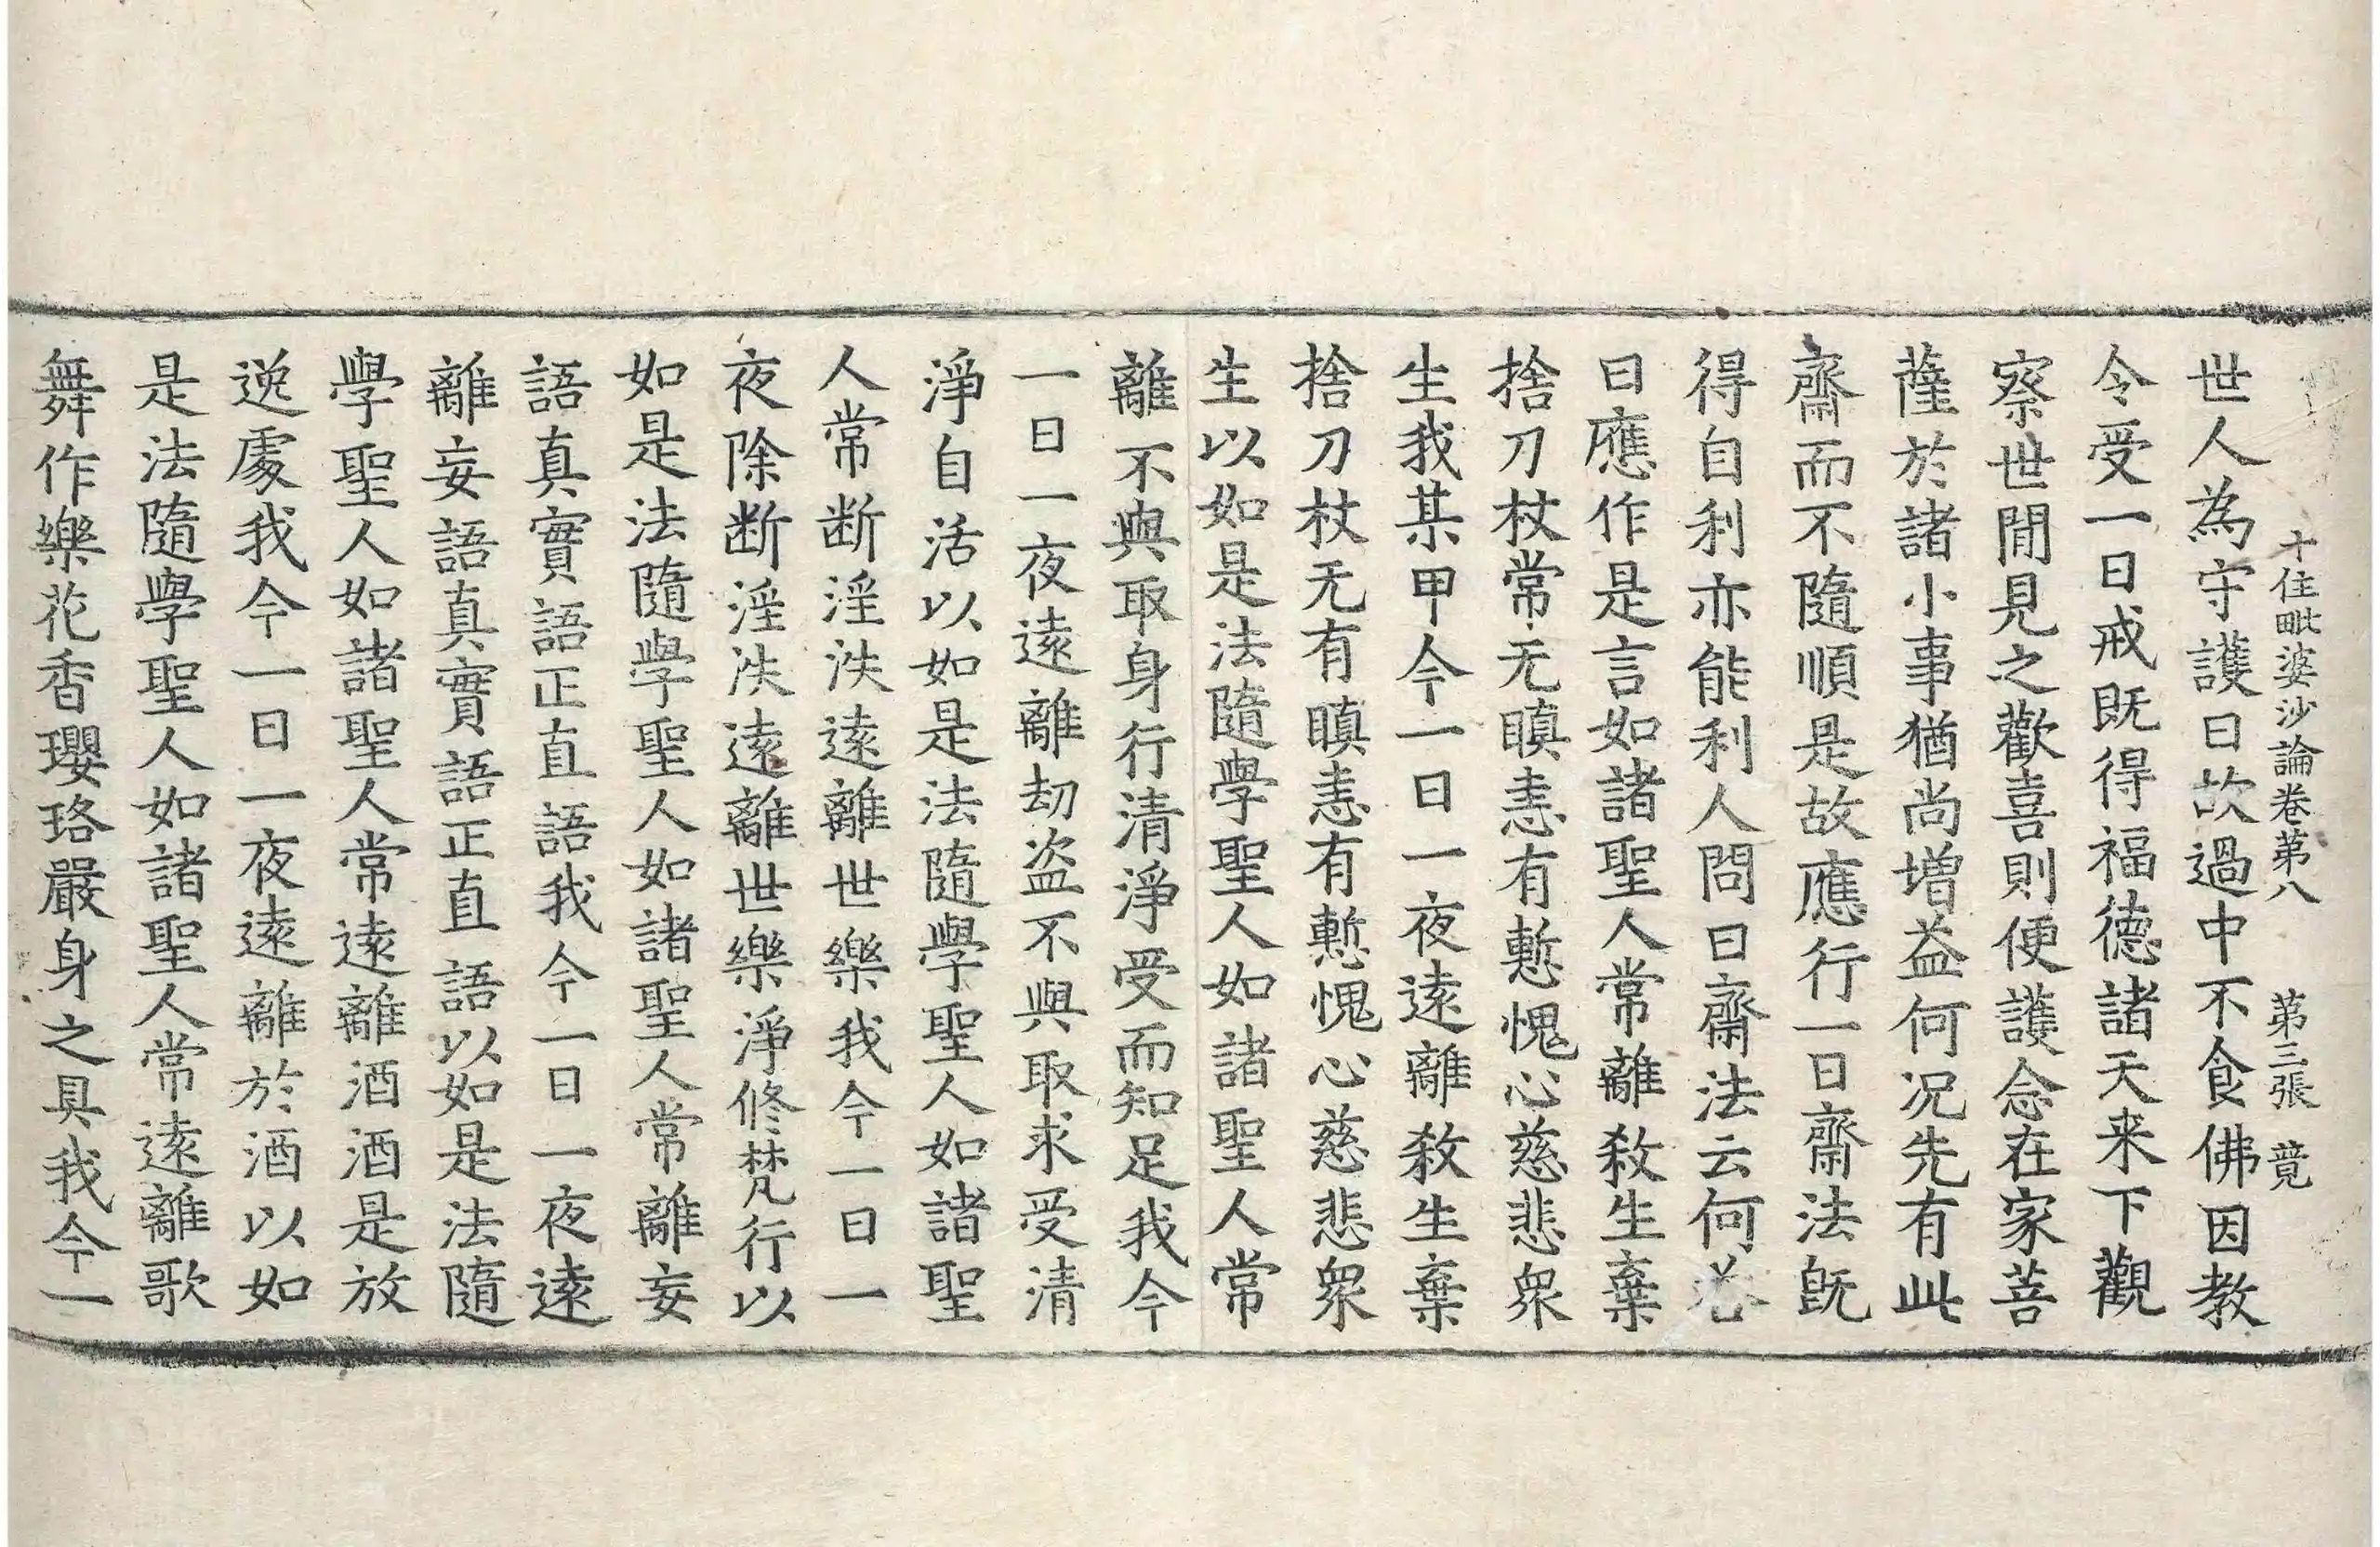 十住毗婆沙論卷第八 第三張 竟
世人為守護日故過中不食佛因教
令受一日戒既得福德諸天来下觀
察世間見之歡喜則便護念在家菩
薩於諸小事猶尚增益何況先有此
齋而不隨順是故應行一日齋法旣
得自利亦能利人問曰齋法云何荅
曰應作是言如諸聖人常離敎生棄
捨刀杖常无瞋恚有慙愧心慈悲衆
生我某甲今一日一夜遠離敎生棄
捨刀杖无有瞋恚有慙愧心慈悲衆
生以如是法隨學聖人如諸聖人常
離不與取身行清淨受而知足我今
一日一夜遠離劫盗不與取求受清
淨自活以如是法隨學聖人如諸聖
人常断淫泆遠離世樂我今一日一
夜除断淫泆遠離世樂淨修梵行以
如是法隨學聖人如諸聖人常離妄
語真實語正直語我今一日一夜遠
離妄語真實語正直語以如是法隨
學聖人如諸聖人常遠離酒酒是放
逸處我今一日一夜遠離於酒以如
是法隨學聖人如諸聖人常遠離歌
舞作樂花香瓔珞嚴身之具我今一